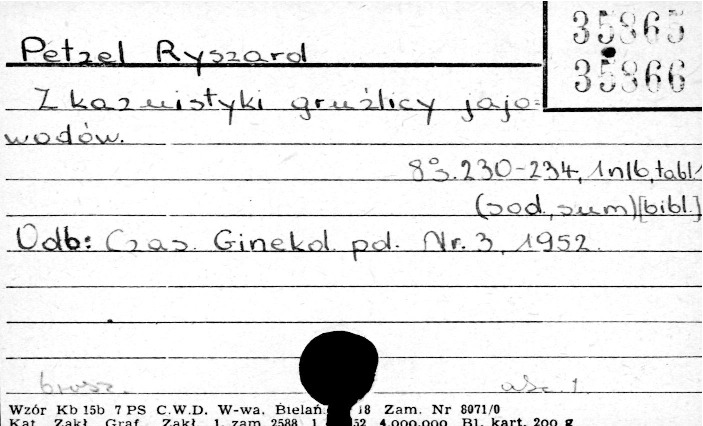 35865
35866
Petzel Ryszard
Z kazuistyki gruźlicy jajo=
wodów.
8° s. 230-234, 1 nlb, tabl 1
(sod., sum) [bibl.]
Odb: Czas. Ginekol. pol. Nr. 3, 1952.
brosz.
Wzór Kb 15b 7 PS C.W.D. W-wa, Bielań. 18 Zam. Nr 8071/0
Kat. Zakł. Graf. Zakł. 1. zam 2588 1 52 4.000.000 Bl. kart. 200 g